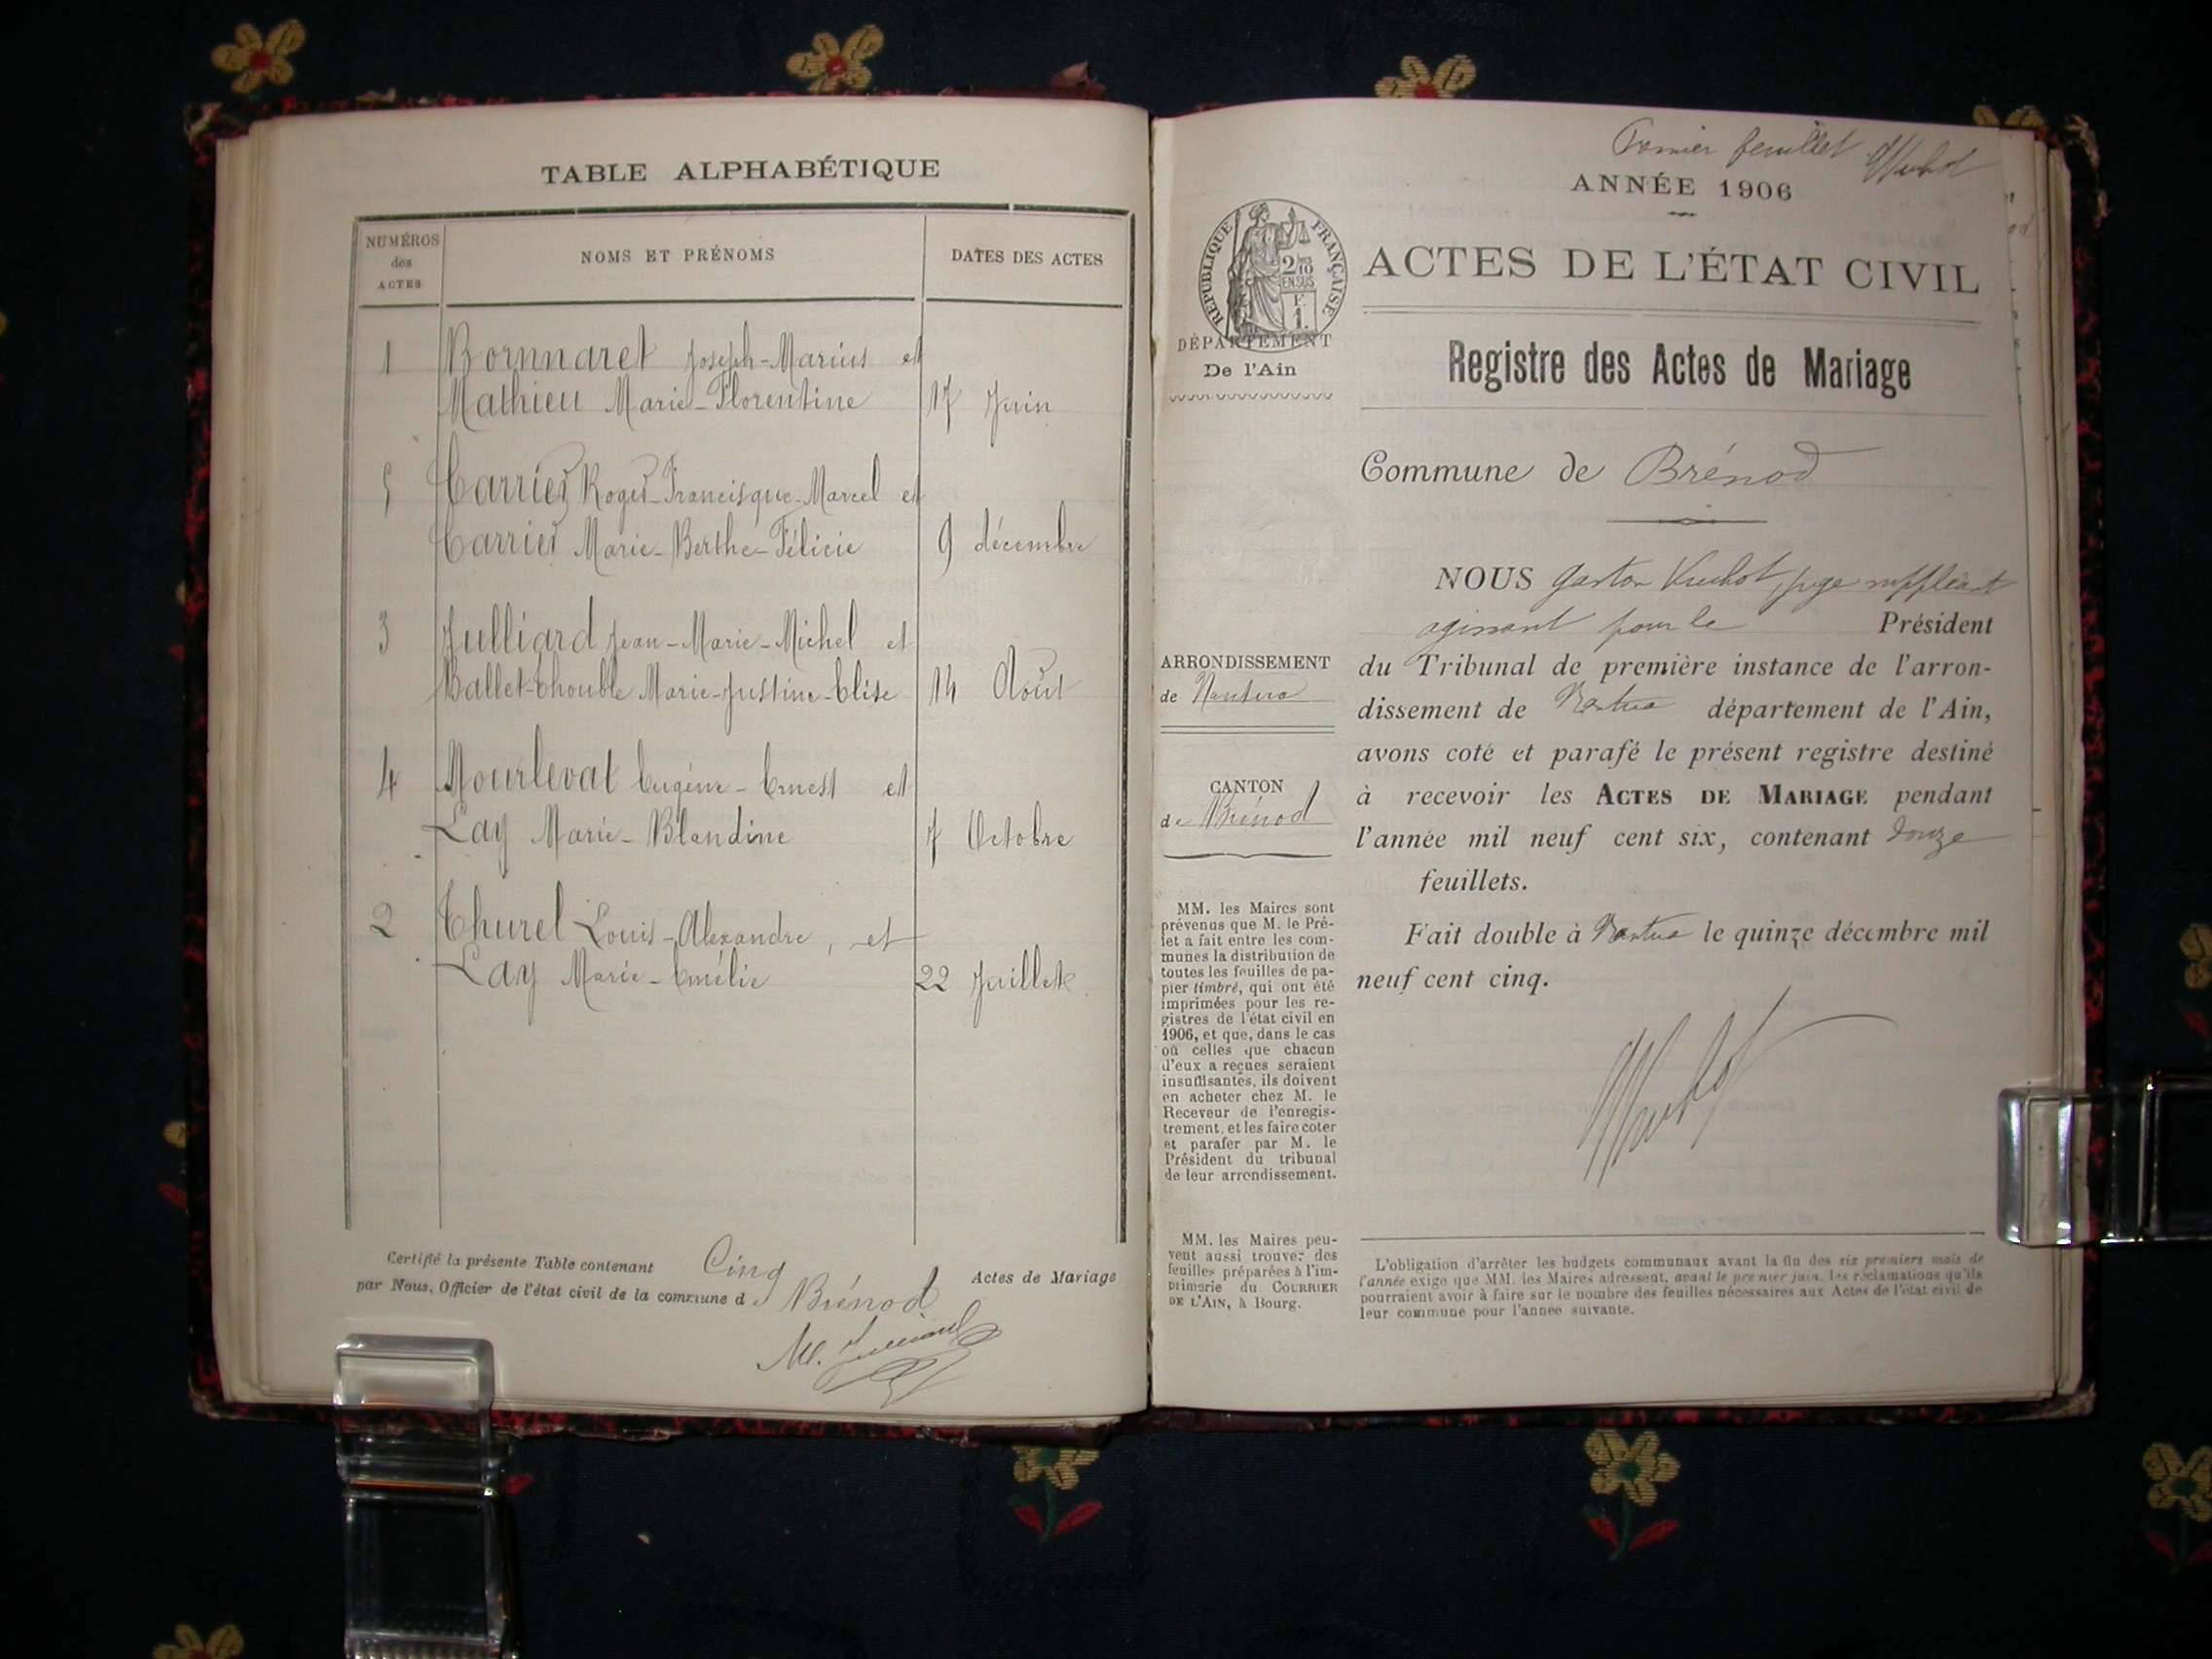 TABLE ALPHABÉTIQUE
NUMÉROS
des
ACTES
NOMS ET PRÉNOMS
DATES DES ACTES
1 Bornnaret Joseph-Marius et
Mathieu Marie-Florentine 17 Juin
5 Carrier Roger-Francisque-Marcel et
Carrier Marie-Berthe-Félicie 9 décembre
3 Julliard Jean-Marie-Michel et
Ballet-Chouble Marie-Justine-Elise 14 Août
4 Mourleval Eugène-Ernest et
Lay Marie-Blandine 7 Octobre
2 Thurel Louis-Alexandre, et
Lay Marie-Emélie 22 Juillet
Certifié la présente Table contenant Cinq Actes de Mariage
par Nous, Officier de l'état civil de la commune de Brénod
Premier feuillet Vuchot
ANNÉE 1906
RÉPUBLIQUE FRANÇAISE
2/10
EN SUS
F.
1.
DÉPARTEMENT
De l'Ain
ACTES DE L'ÉTAT CIVIL
Registre des Actes de Mariage
Commune de Brénod
ARRONDISSEMENT
de Nantua
CANTON
de Brénod
MM. les Maires sont
prévenus que M. le Pré-
fet a fait entre les com-
munes la distribution de
toutes les feuilles de pa-
pier timbré, qui ont été
imprimées pour les re-
gistres de l'état civil en
1906, et que, dans le cas
où celles que chacun
d'eux a reçues seraient
insuffisantes, ils doivent
en acheter chez M. le
Receveur de l'enregis-
trement, et les faire coter
et parafer par M. le
Président du tribunal
de leur arrondissement.
MM. les Maires peu-
vent aussi trouver des
feuilles préparées à l'im-
primerie du COURRIER
DE L'AIN, à Bourg.
NOUS Gaston Vuchot, juge suppléant
agissant pour le Président
du Tribunal de première instance de l'arron-
dissement de Nantua département de l'Ain,
avons coté et parafé le présent registre destiné
à recevoir les ACTES DE MARIAGE pendant
l'année mil neuf cent six, contenant douze
feuillets.
Fait double à Nantua le quinze décembre mil
neuf cent cinq.
Vuchot
L'obligation d'arrêter les budgets communaux avant la fin des six premiers mois de
l'année exige que MM. les Maires adressent, avant le premier juin, les réclamations qu'ils
pourraient avoir à faire sur le nombre des feuilles nécessaires aux Actes de l'état civil de
leur commune pour l'année suivante.